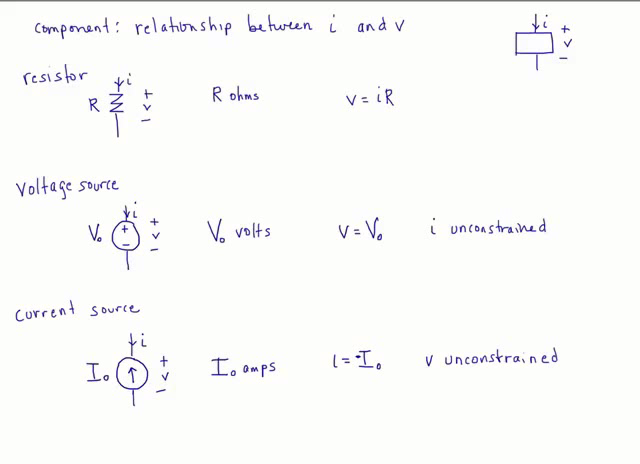 component: relationship between i and v
i + v −
resistor
R i + v − R ohms v = iR
Voltage source
V₀ + − i + v − V₀ volts v = V₀ i unconstrained
Current source
I₀ i + v − I₀ amps i = -I₀ v unconstrained